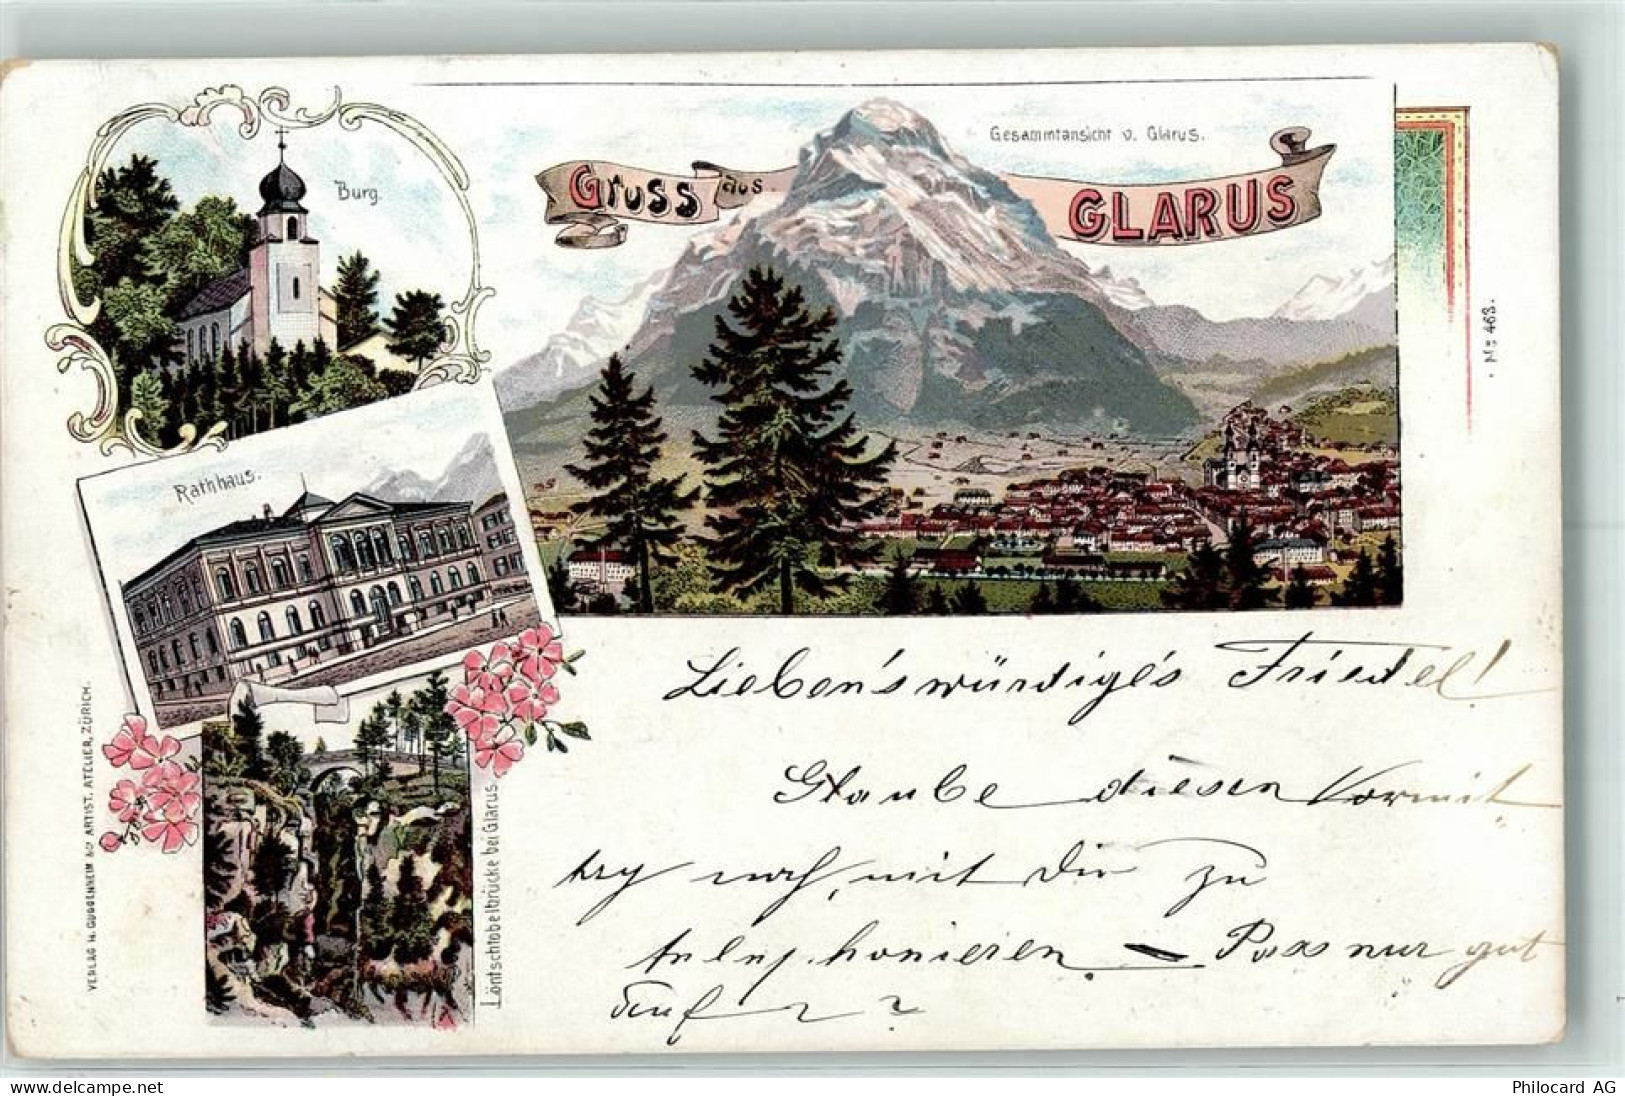 Burg.
Gruss aus GLARUS
Gesammtansicht v. Glarus.
Rathhaus.
Löntschtobelbrücke bei Glarus.
VERLAG H. GUGGENHEIM & Co ARTIST. ATELIER, ZÜRICH.
No 463.
Lieben'swürdige's Friedel!
Glaube diesen Vormit
tag noch, mit Dir zu
telep.honieren – Pass nur gut
auf
Philocard AG